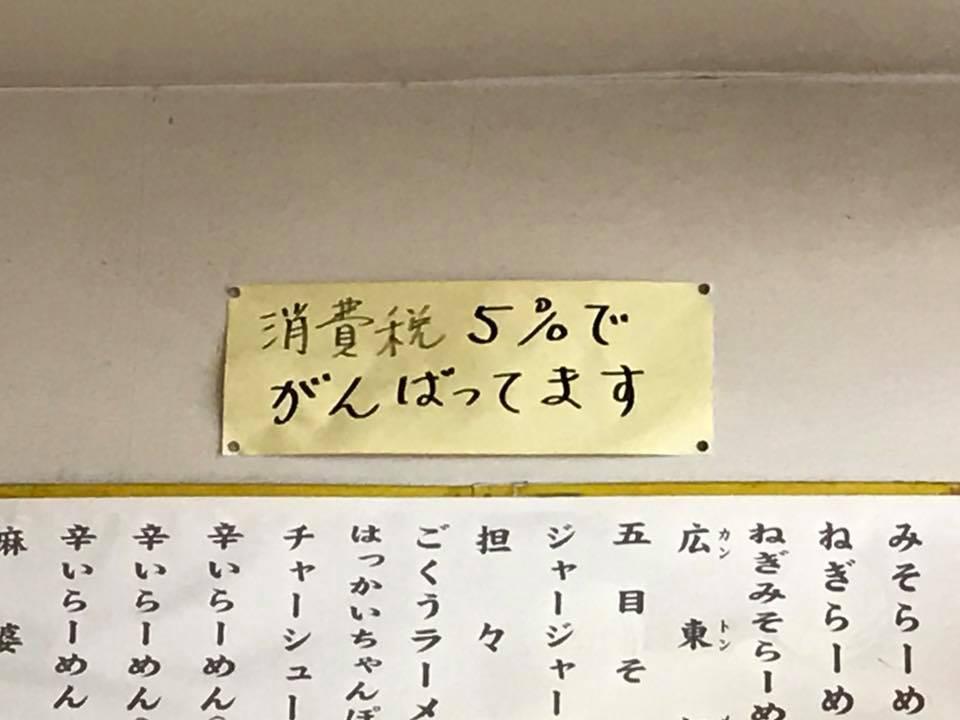 消費税 5%で
がんばってます
みそらーめ
ねぎらーめ
ねぎみそらーめ
広東
カントン
五目そ
ジャージャー
担々
ごくうラーメ
はっかいちゃんぽ
チャーシュー
辛いらーめん
辛いらーめん
辛いらーめん
麻婆